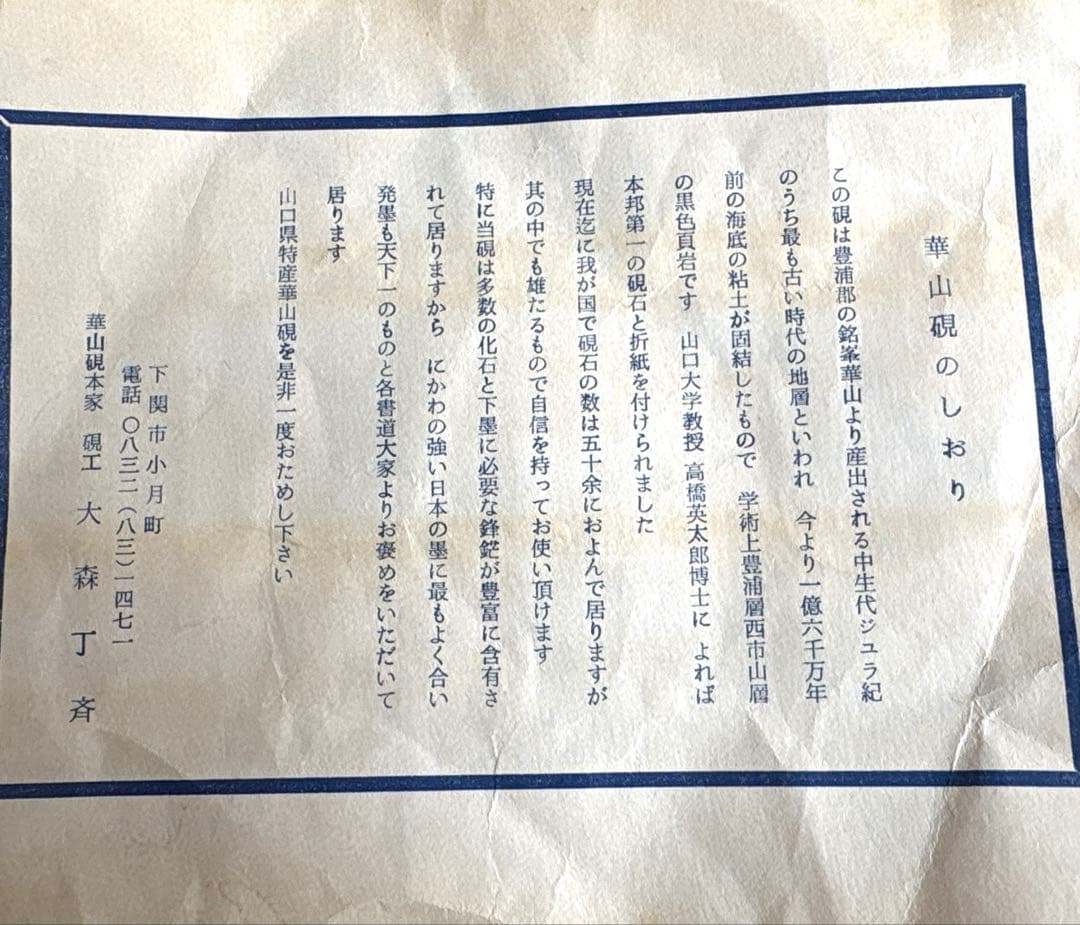 華山硯のしおり
この硯は豊浦郡の銘峯華山より産出される中生代ジュラ紀
のうち最も古い時代の地層といわれ　今より一億六千万年
前の海底の粘土が固結したもので　学術上豊浦層西市山層
の黒色頁岩です　山口大学教授　高橋英太郎博士に　よれば
本邦第一の硯石と折紙を付けられました
現在迄に我が国で硯石の数は五十余におよんで居りますが
其の中でも雄たるもので自信を持ってお使い頂けます
特に当硯は多数の化石と下墨に必要な鋒鋩が豊富に含有さ
れて居りますから　にかわの強い日本の墨に最もよく合い
発墨も天下一のものと各書道大家よりお褒めをいただいて
居ります
山口県特産華山硯を是非一度おためし下さい
下関市小月町
電話〇八三二（八三）一四七一
華山硯本家　硯工　大森丁斉